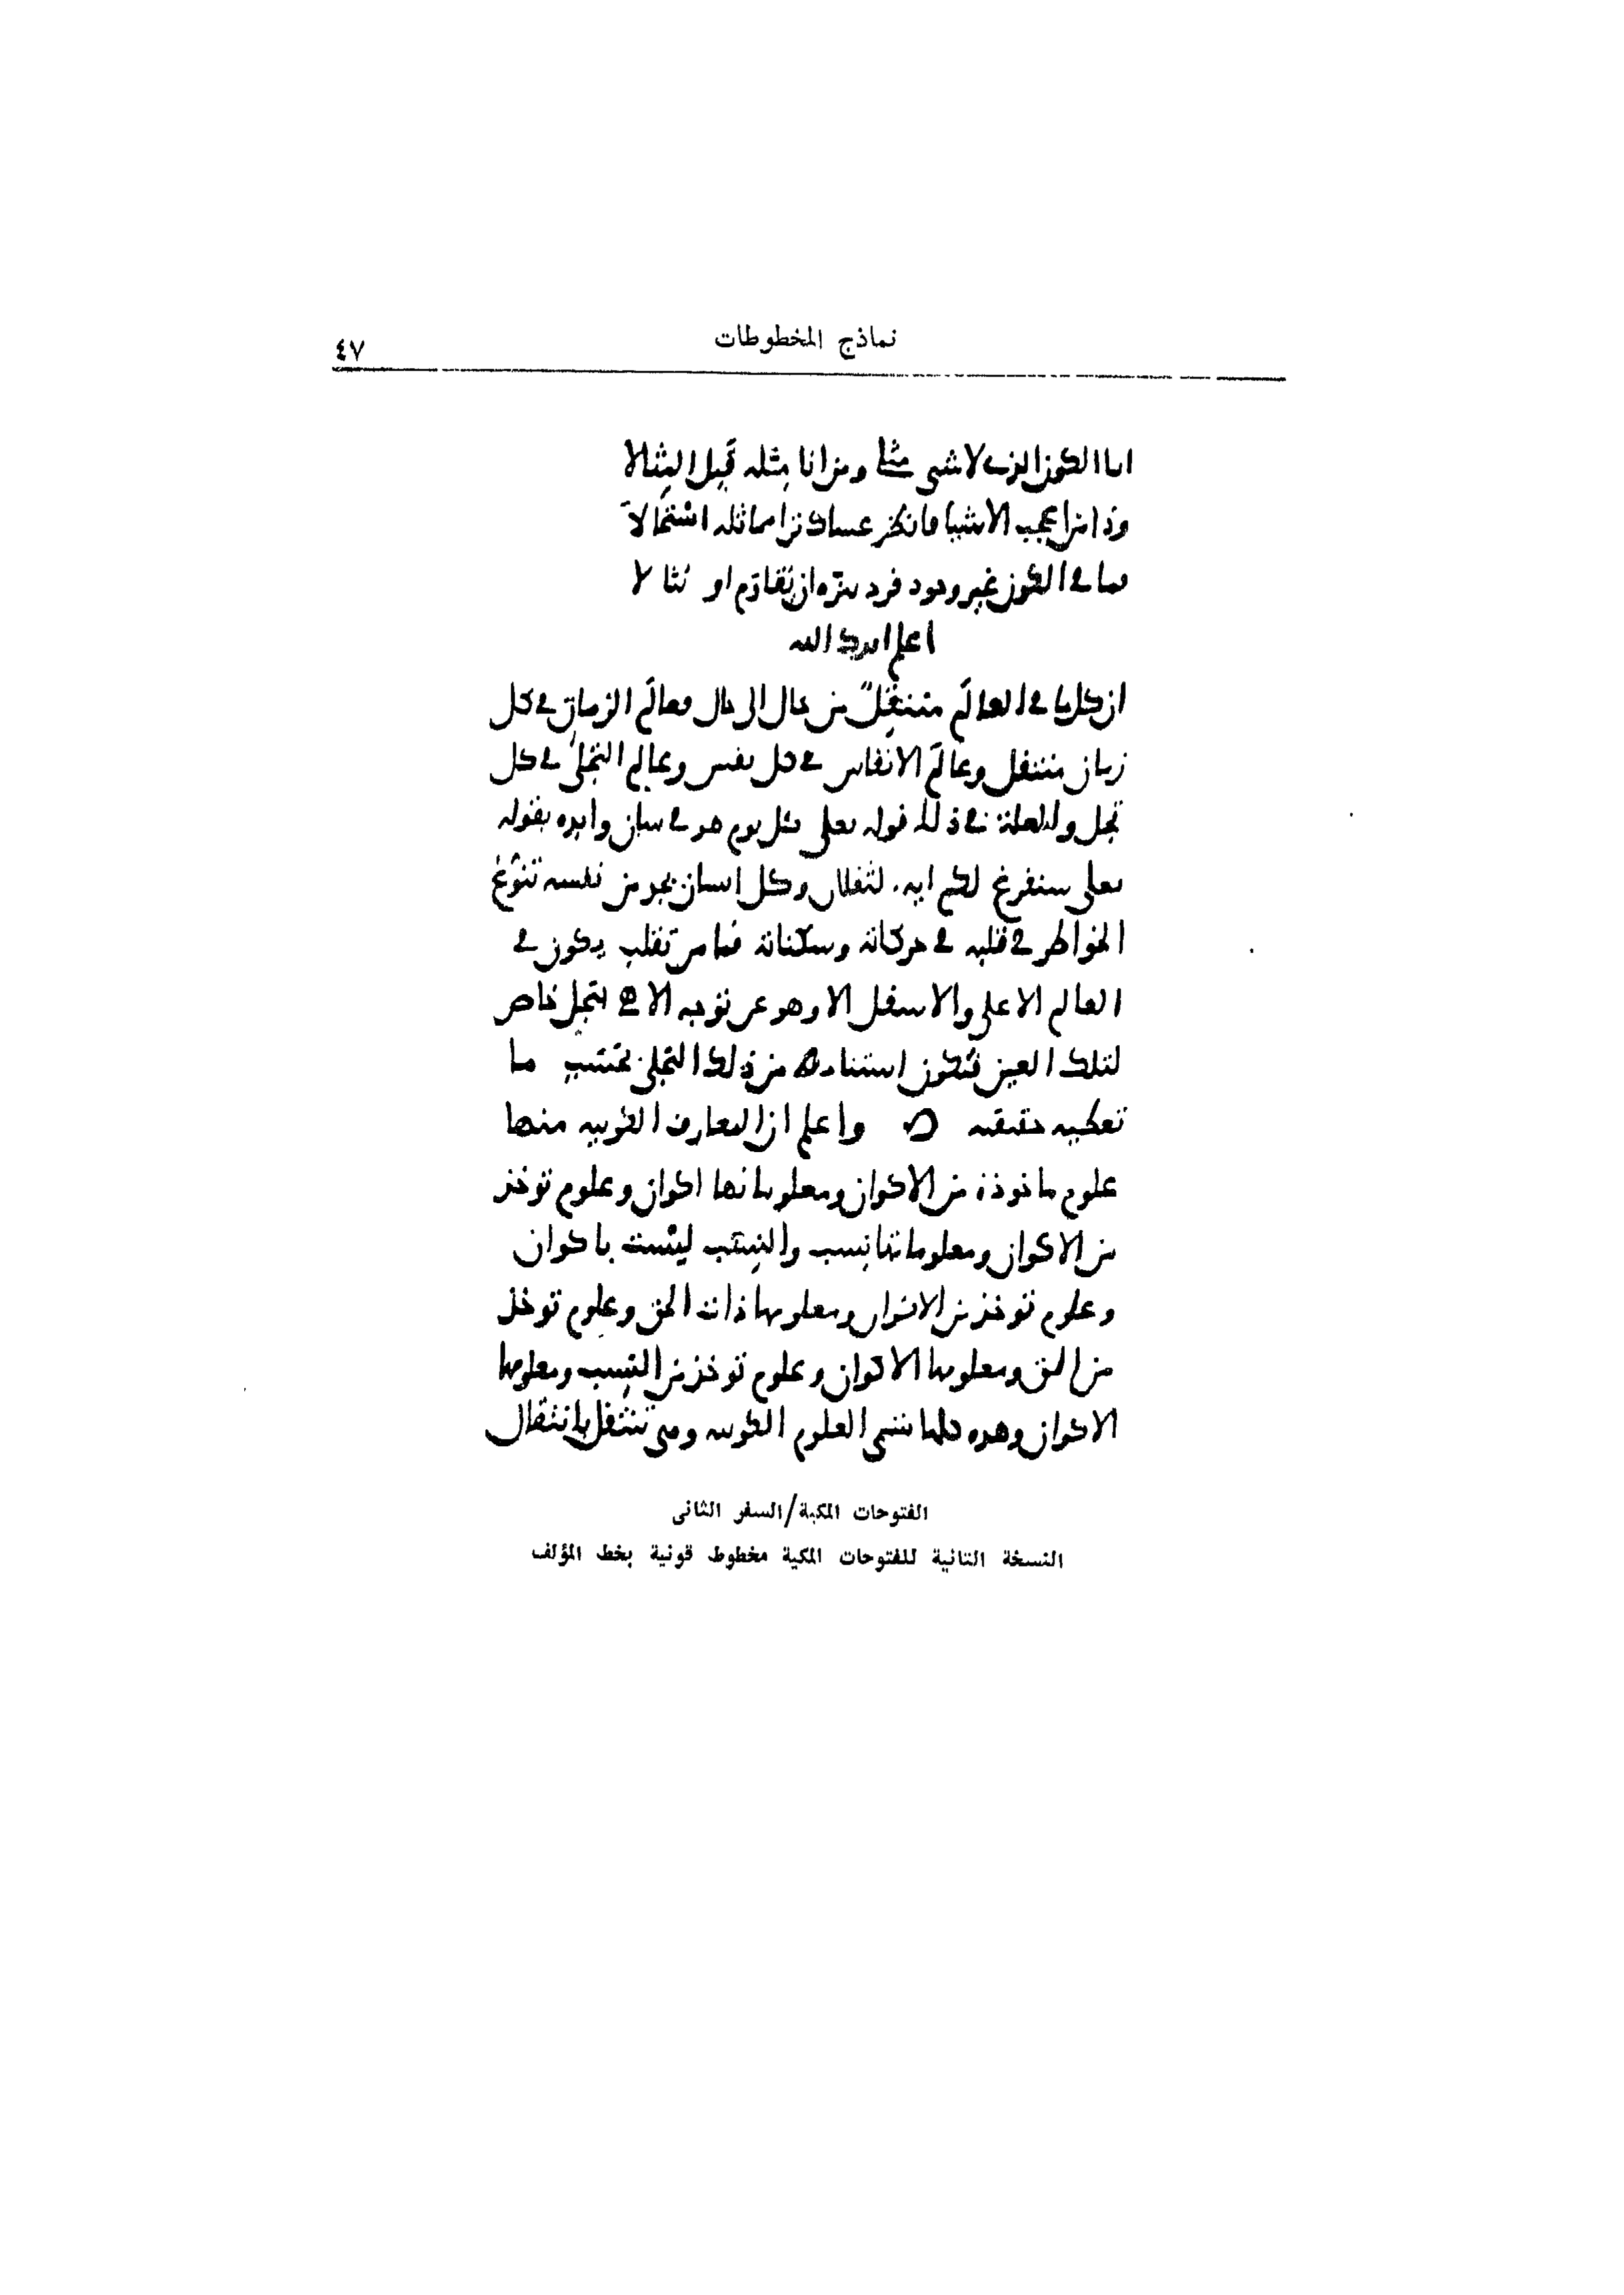 نماذج المخطوطات
٤٧
انا الكون الذى لا شى مثلى ومن انا مثله قبل المثالا
وذا من اعجب الاشيا فانظر عساك ترا مماثله استحالا
فما فى الكون غير وجود فرد تنزه ان يقاوم او ينالا
اعلم ايدك الله
ان كل ما فى العالم منتقل من حال الى حال فعالم الزمان فى كل
زمان منتقل وعالم الانفاس فى كل نفس وعالم التجلى فى كل
تجل والعلة فى ذلك قوله تعلى كل يوم هو فى شان وايده بقوله
تعلى سنفرغ لكم ايه الثقلان وكل انسان يجد من نفسه تنوع
الخواطر فى قلبه فى حركاته وسكناته فما من تقلب يكون فى
العالم الاعلى والاسفل الا وهو عن توجه الاهى بتجل خاص
لتلك العين فتكون استناده من ذلك التجلى بحسب ما
تعطيه حقيقته واعلم ان المعارف الكونيه منها
علوم ماخوذة من الاكوان ومعلوماتها اكوان وعلوم توخذ
من الاكوان ومعلوماتها نسب والنسب ليست باكوان
وعلوم توخذ من الاكوان ومعلومها ذات الحق وعلوم توخذ
من الحق ومعلومها الاكوان وعلوم توخذ من النسب ومعلومها
الاكوان وهذه كلها تسمى العلوم الكونيه وهى تنتقل بانتقال
الفتوحات المكية/السفر الثانى
النسخة الثانية للفتوحات المكية مخطوط قونية بخط المؤلف